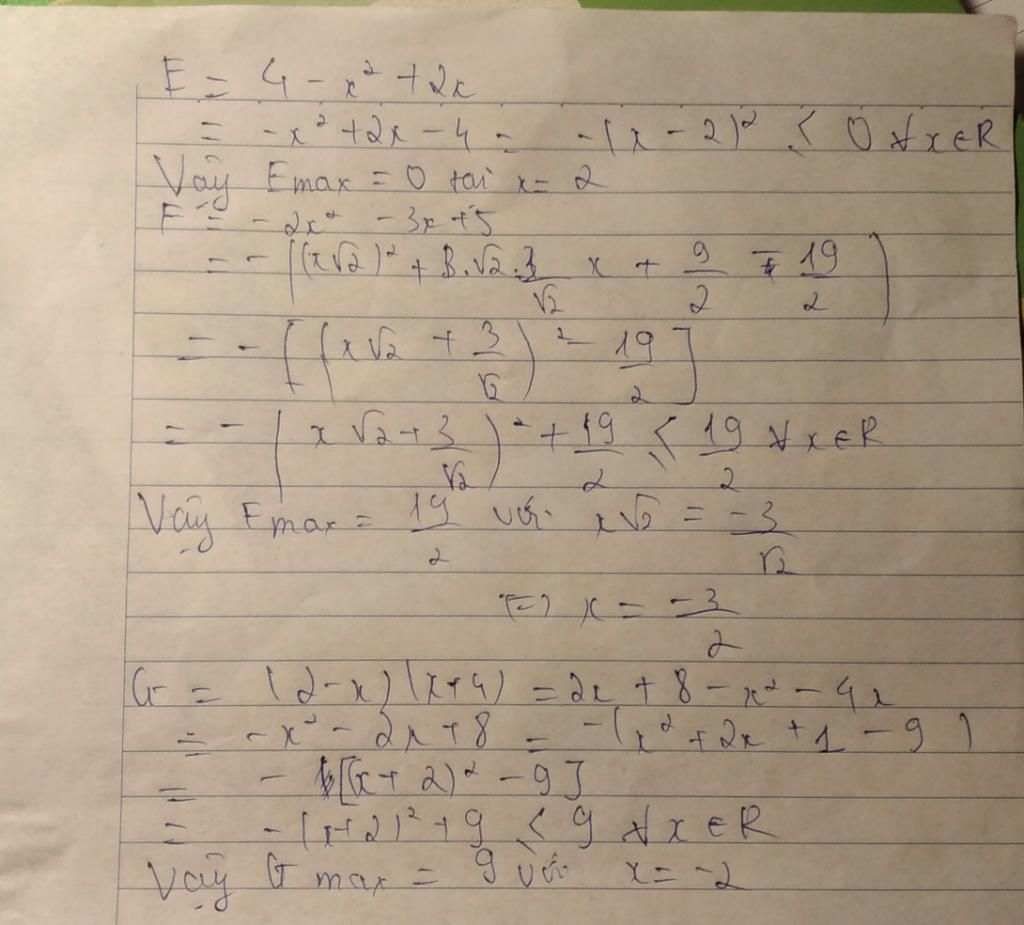 E = 4 - x² + 2x
= -x² + 2x - 4 = -(x - 2)² ≤ 0 ∀x∈R
Vậy Emax = 0 tại x = 2
F = -2x² - 3x + 5
= -[(x√2)² + 3.√2.3/√2 x + 9/2 - 19/2]
= -[(x√2 + 3/√2)² - 19/2]
= -(x√2 + 3/√2)² + 19/2 ≤ 19/2 ∀x∈R
Vậy Fmax = 19/2 với x√2 = -3/√2
⇔ x = -3/2
G = (2-x)(x+4) = 2x + 8 - x² - 4x
= -x² - 2x + 8 = -(x² + 2x + 1 - 9)
= -[(x + 2)² - 9]
= -(x+2)² + 9 ≤ 9 ∀x∈R
Vậy Gmax = 9 với x = -2